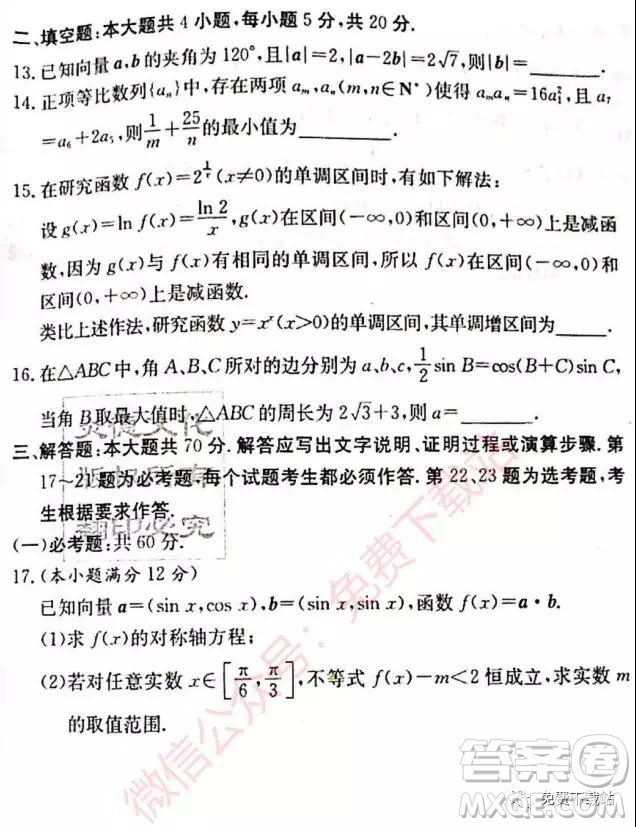 二、填空题:本大题共 4 小题,每小题 5 分,共 20 分.
13. 已知向量 a,b 的夹角为 120°,且|a|=2,|a-2b|=2√7,则|b|=______.
14. 正项等比数列{aₙ}中,存在两项 aₘ,aₙ(m,n∈N*)使得 aₘaₙ=16a₁²,且 a₇
=a₆+2a₅,则 1/m + 25/n 的最小值为________.
15. 在研究函数 f(x)=2^(1/x)(x≠0)的单调区间时,有如下解法:
设 g(x)=ln f(x)=ln 2/x,g(x)在区间(-∞,0)和区间(0,+∞)上是减函
数,因为 g(x)与 f(x)有相同的单调区间,所以 f(x)在区间(-∞,0)和
区间(0,+∞)上是减函数.
类比上述作法,研究函数 y=xˣ(x>0)的单调区间,其单调增区间为_____.
16. 在△ABC 中,角 A、B、C 所对的边分别为 a、b、c,1/2 sin B=cos(B+C)sin C,
当角 B 取最大值时,△ABC 的周长为 2√3+3,则 a=______.
三、解答题:本大题共 70 分. 解答应写出文字说明、证明过程或演算步骤. 第
17~21 题为必考题,每个试题考生都必须作答. 第 22、23 题为选考题,考
生根据要求作答.
(一)必考题:共 60 分.
17. (本小题满分 12 分)
已知向量 a=(sin x,cos x),b=(sin x,sin x),函数 f(x)=a·b.
(1)求 f(x)的对称轴方程;
(2)若对任意实数 x∈[π/6,π/3],不等式 f(x)-m<2 恒成立,求实数 m
的取值范围.
版权所有
翻印必究
微信公众号:免费下载站
答案圈
免费下载站
MXQE.COM